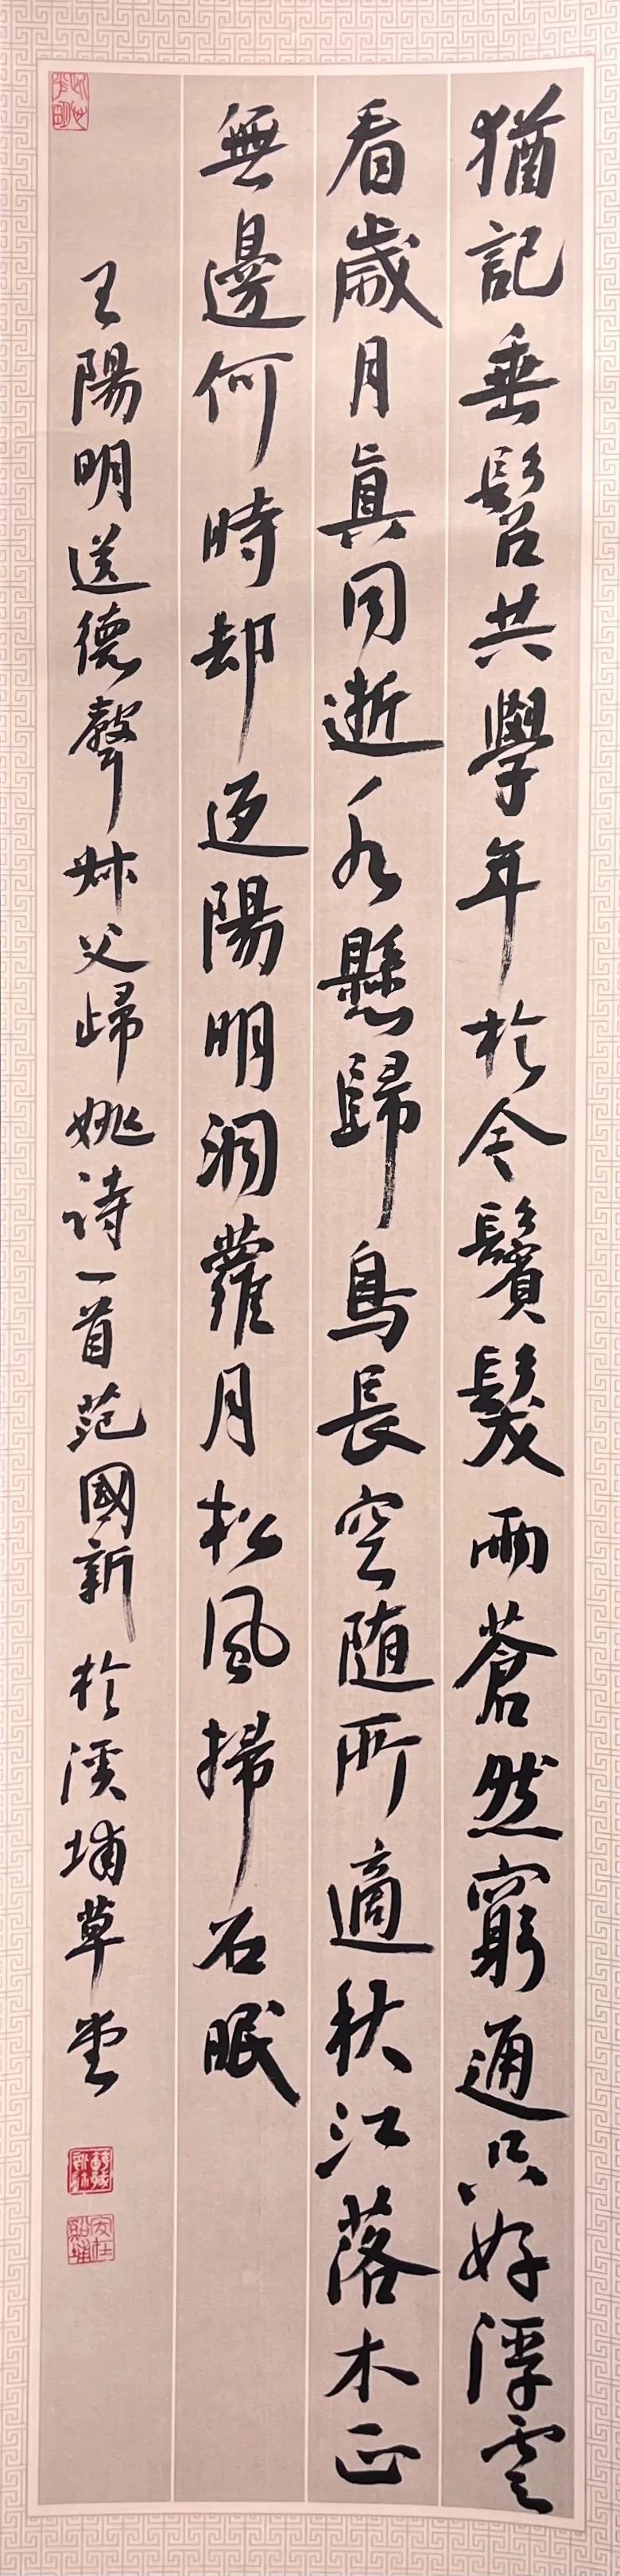 猶記垂髫共學年於今鬢髮兩蒼然窮通只好浮雲
看歲月真同逝水懸歸鳥長空随所適秋江落木正
無邊何時却返陽明洞蘿月松風掃石眠
王陽明送德聲叔父歸姚诗一首范國新於溪埔草堂